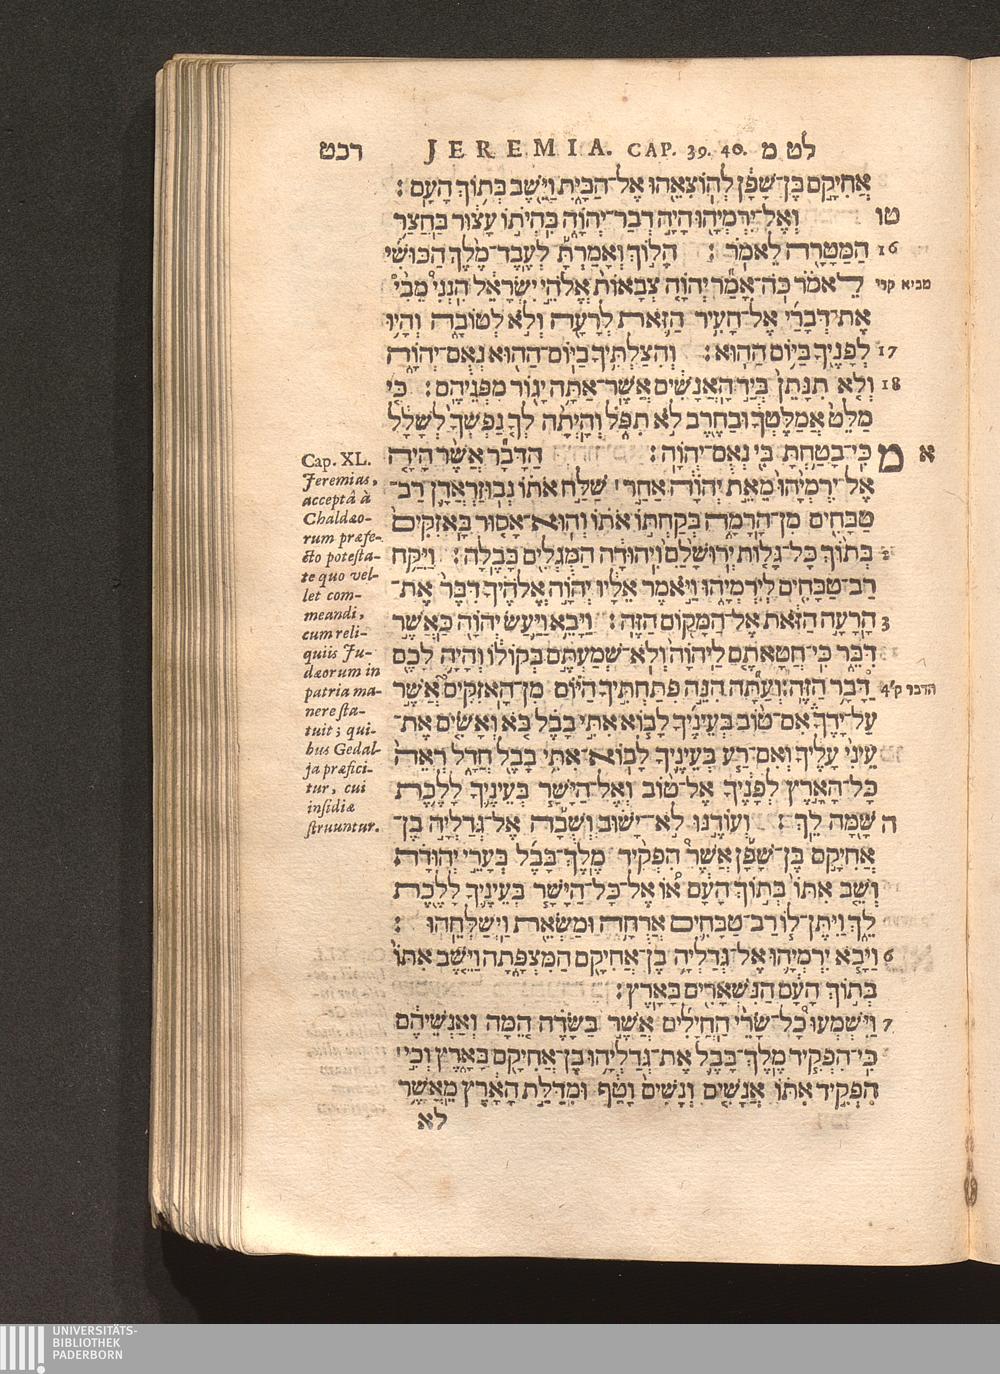 רכט JEREMIA. CAP. 39. 40. לט מ
אֲחִיקָם בֶּן־שָׁפָן לְהוֹצִאֵהוּ אֶל־הַבָּיִת וַיֵּשֶׁב בְּתוֹךְ הָעָם׃
טו וְאֶל־יִרְמְיָהוּ הָיָה דְבַר־יְהוָֹה בִּהְיֹתוֹ עָצוּר בַּחֲצַר
16 הַמַּטָּרָה לֵאמֹר׃ הָלוֹךְ וְאָמַרְתָּ לְעֶבֶד־מֶלֶךְ הַכּוּשִׁי
מביא קרי לֵאמֹר כֹּה־אָמַר יְהוָֹה צְבָאוֹת אֱלֹהֵי יִשְׂרָאֵל הִנְנִי מֵבִי
אֶת־דְּבָרַי אֶל־הָעִיר הַזֹּאת לְרָעָה וְלֹא לְטוֹבָה וְהָיוּ
17 לְפָנֶיךָ בַּיּוֹם הַהוּא׃ וְהִצַּלְתִּיךָ בַיּוֹם־הַהוּא נְאֻם־יְהוָֹה
18 וְלֹא תִנָּתֵן בְּיַד הָאֲנָשִׁים אֲשֶׁר־אַתָּה יָגוֹר מִפְּנֵיהֶם׃ כִּי
מַלֵּט אֲמַלֶּטְךָ וּבַחֶרֶב לֹא תִפֹּל וְהָיְתָה לְךָ נַפְשְׁךָ לְשָׁלָל
א מ כִּי־בָטַחְתָּ בִּי נְאֻם־יְהוָֹה׃ הַדָּבָר אֲשֶׁר הָיָה
אֶל־יִרְמְיָהוּ מֵאֵת יְהוָֹה אַחַר שַׁלַּח אֹתוֹ נְבוּזַרְאֲדָן רַב־
טַבָּחִים מִן־הָרָמָה בְּקַחְתּוֹ אֹתוֹ וְהוּא־אָסוּר בָּאזִקִּים
2 בְּתוֹךְ כָּל־גָּלוּת יְרוּשָׁלִַם וִיהוּדָה הַמֻּגְלִים בָּבֶלָה׃ וַיִּקַּח
רַב־טַבָּחִים לְיִרְמְיָהוּ וַיֹּאמֶר אֵלָיו יְהוָֹה אֱלֹהֶיךָ דִּבֶּר אֶת־
3 הָרָעָה הַזֹּאת אֶל־הַמָּקוֹם הַזֶּה׃ וַיָּבֵא וַיַּעַשׂ יְהוָֹה כַּאֲשֶׁר
דִּבֵּר כִּי־חֲטָאתֶם לַיהוָֹה וְלֹא־שְׁמַעְתֶּם בְּקוֹלוֹ וְהָיָה לָכֶם
הדבר ק' 4 דָּבָר הַזֶּה׃ וְעַתָּה הִנֵּה פִתַּחְתִּיךָ הַיּוֹם מִן־הָאזִקִּים אֲשֶׁר
עַל־יָדֶךָ אִם־טוֹב בְּעֵינֶיךָ לָבוֹא אִתִּי בָבֶל בֹּא וְאָשִׂים אֶת־
עֵינִי עָלֶיךָ וְאִם־רַע בְּעֵינֶיךָ לָבוֹא־אִתִּי בָבֶל חֲדָל רְאֵה
כָּל־הָאָרֶץ לְפָנֶיךָ אֶל־טוֹב וְאֶל־הַיָּשָׁר בְּעֵינֶיךָ לָלֶכֶת
ה שָׁמָּה לֵךְ׃ וְעוֹדֶנּוּ לֹא־יָשׁוּב וְשֻׁבָה אֶל־גְּדַלְיָה בֶן־
אֲחִיקָם בֶּן־שָׁפָן אֲשֶׁר הִפְקִיד מֶלֶךְ־בָּבֶל בְּעָרֵי יְהוּדָה
וְשֵׁב אִתּוֹ בְּתוֹךְ הָעָם אוֹ אֶל־כָּל־הַיָּשָׁר בְּעֵינֶיךָ לָלֶכֶת
לֵךְ וַיִּתֶּן־לוֹ רַב־טַבָּחִים אֲרֻחָה וּמַשְׂאֵת וַיְשַׁלְּחֵהוּ׃
6 וַיָּבֹא יִרְמְיָהוּ אֶל־גְּדַלְיָה בֶן־אֲחִיקָם הַמִּצְפָּתָה וַיֵּשֶׁב אִתּוֹ
בְּתוֹךְ הָעָם הַנִּשְׁאָרִים בָּאָרֶץ׃
7 וַיִּשְׁמְעוּ כָל־שָׂרֵי הַחֲיָלִים אֲשֶׁר בַּשָּׂדֶה הֵמָּה וְאַנְשֵׁיהֶם
כִּי־הִפְקִיד מֶלֶךְ־בָּבֶל אֶת־גְּדַלְיָהוּ בֶן־אֲחִיקָם בָּאָרֶץ וְכִי
הִפְקִיד אִתּוֹ אֲנָשִׁים וְנָשִׁים וָטָף וּמִדַּלַּת הָאָרֶץ מֵאֲשֶׁר
לא
Cap. XL.
Jeremias,
acceptâ à
Chaldæo-
rum præfe-
cto potesta-
te quo vel-
let com-
meandi,
cum reli-
quiis Ju-
dæorum in
patria ma-
nere sta-
tuit; qui-
bus Gedal-
ja præfici-
tur, cui
insidiæ
struuntur.
UNIVERSITÄTS-
BIBLIOTHEK
PADERBORN